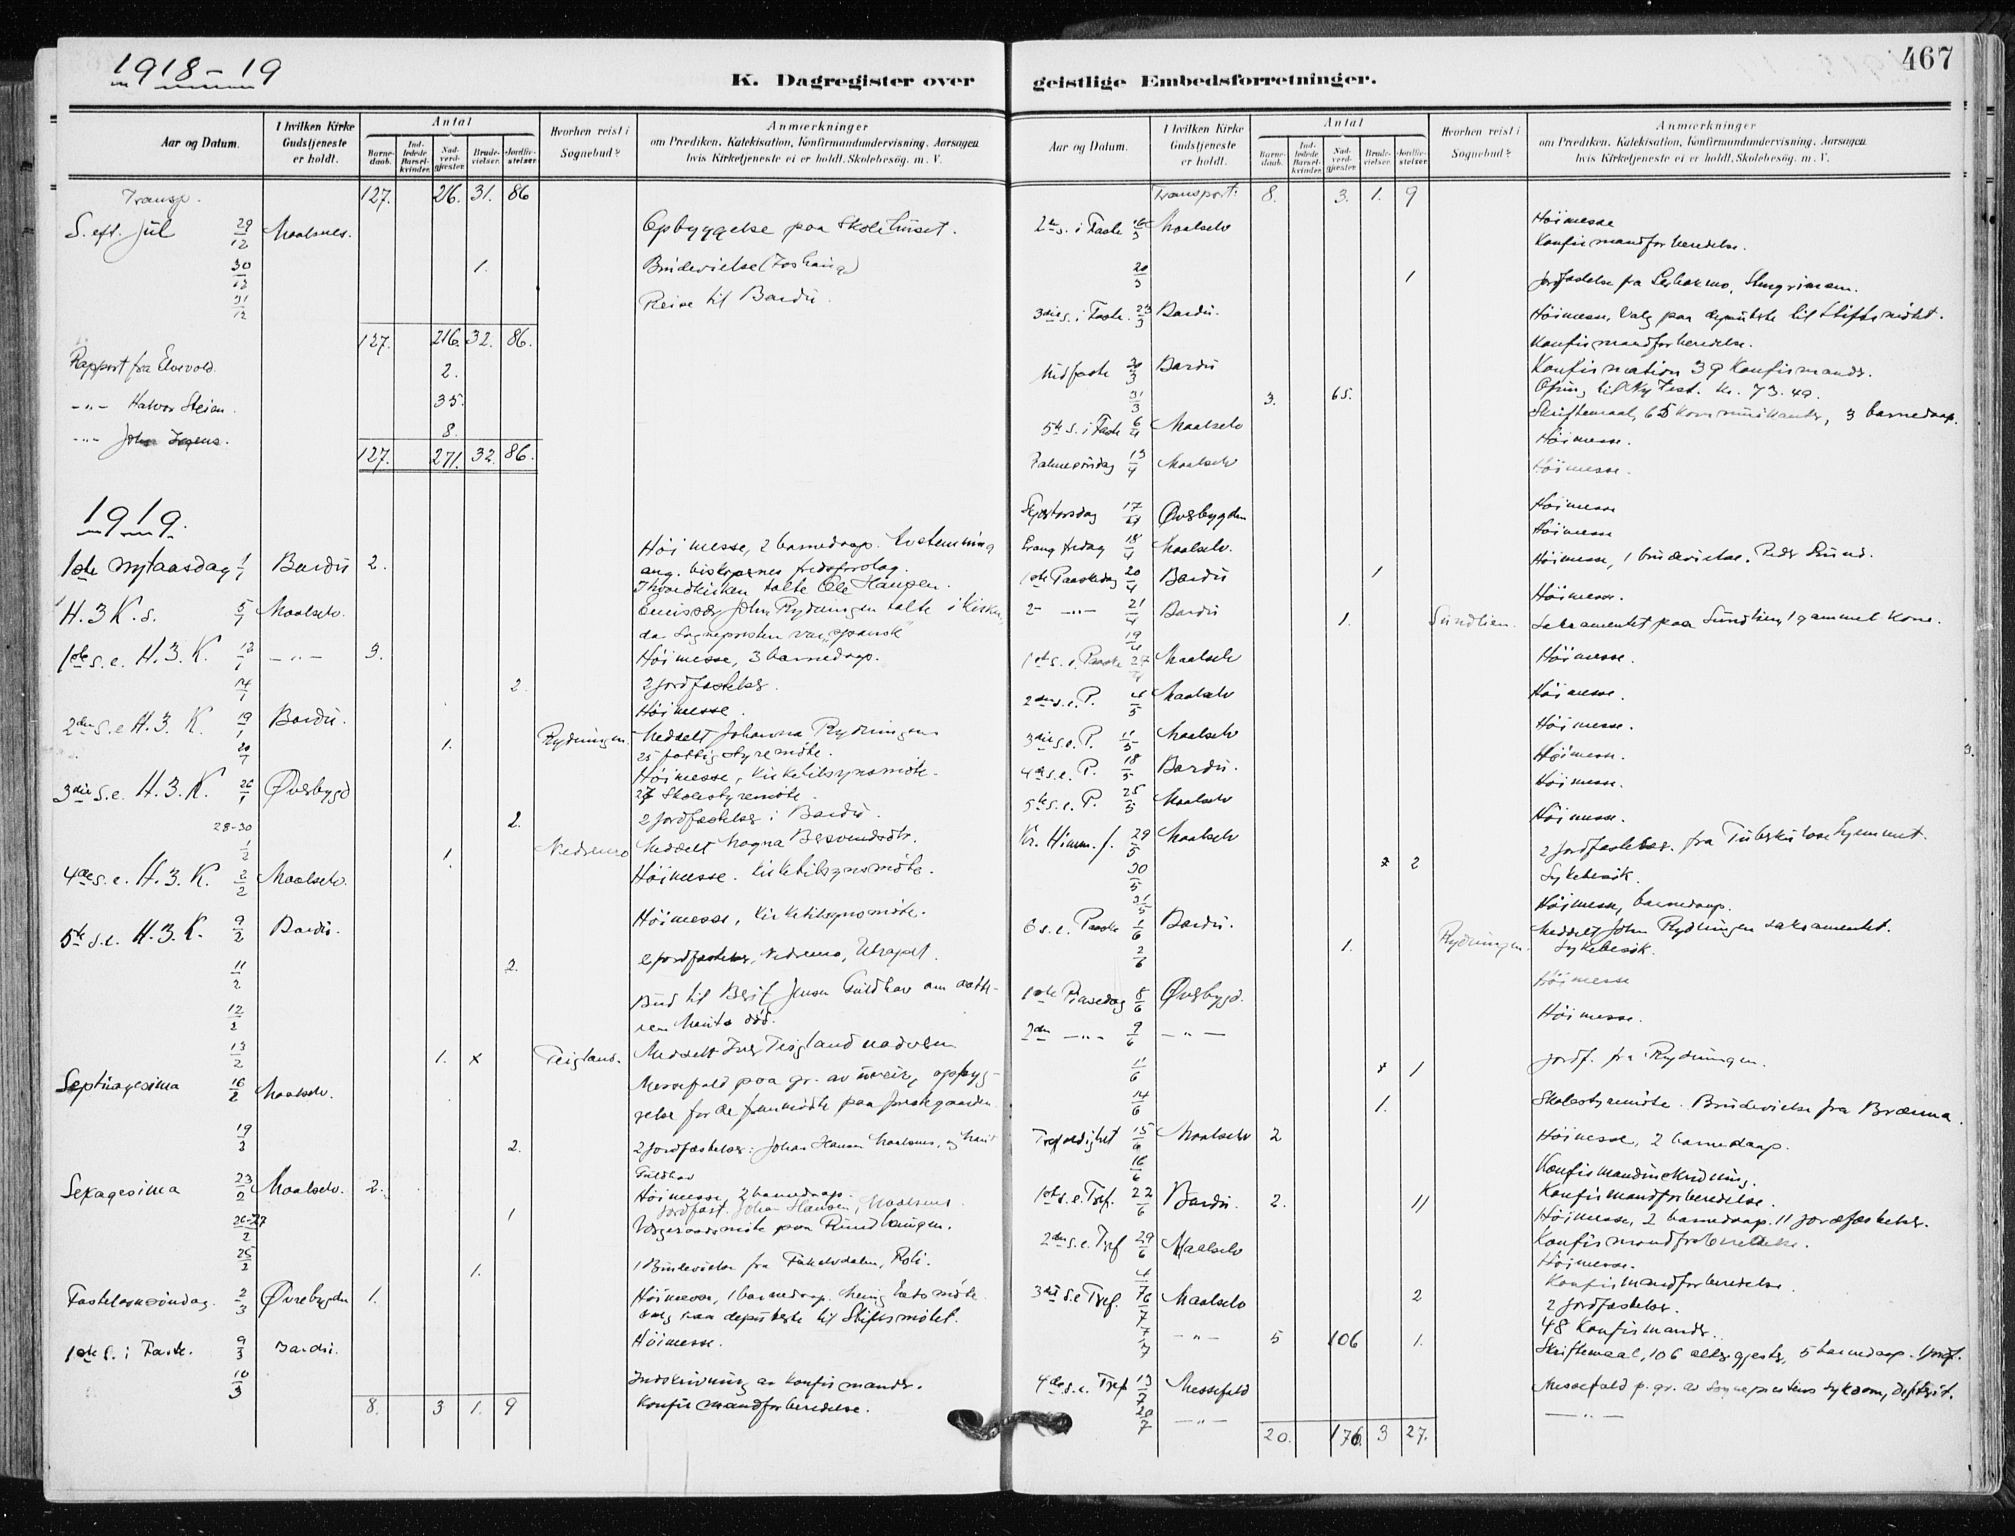 1918-19
K. Dagregister over
Aar og Datum.
I hvilken Kirke Gudstjeneste er holdt.
Antal
Barnedaab.
Indledede Barselkvinder.
Nadverdgjester.
Brudevielser.
Jordfæstelser.
Hvorhen reist i Sognebud?
Anmærkninger
om Prædiken, Katekisation, Konfirmandundervisning, Aarsagen
hvis Kirketjeneste ei er holdt, Skolebesøg. m. V.
Transp. 127. 216. 31. 86
S. eft. Jul 29/12 Maalsnes. Opbyggelse paa Skolehuset.
30/12 1. Brudevielse
31/12 Reise til Bardu.
127. 216. 32. 86.
Rapport fra Elvevold. 2.
-"- Halvor Steien. 35.
-"- 8.
127. 271. 32. 86.
1919.
1ste Nytaarsdag 1/1 Bardu 2. Høimesse, 2 barnedaap.
ang. biskopernes fredsforslag.
talte Ole Hansen.
H. 3 K. s. 5/1 Maalselv. John Rydningen talte i kirken,
da sognepresten var "spansk"
1ste s. e. H. 3. K. 12/1 -"- 3. Høimesse, 3 barnedaap.
14/1 2. 2 jordfæstelser.
2den s. e H. 3. K. 19/1 Bardu. Høimesse.
20/1 1. Rydningen Meddelt Johanna Rydningen
25 fattigstyremöte.
3die s. e. H. 3. K. 26/1 Øverbygd Høimesse, kirketilsynsmöte.
27 Skolestyremöte.
28-30 2. 2 jordfæstelser i Bardu.
1/2 1. Nedremo Meddelt Magna
4de s. e. H. 3. K. 2/2 Maalselv. Høimesse. kirketilsynsmöte.
5te s. e. H. 3. K. 9/2 Bardu. Høimesse, kirketilsynsmöte.
11/2 2. 2 jordfæstelser, Nedremo,
12/2 Bud til Berit Jensen Guldhav om
død.
13/2 1. x Teigland.
Septuagesima 16/2 Maalselv. Messefald paa gr. av uveir, opbyg-
gelse for de fremmödte paa prestegaarden.
19/2 2. 2 jordfæstelser: Johan Hansen Maalsnes, og
Guldhav
Sexagesima 23/2 Maalselv. 2. Høimesse, 2 barnedaap.
1 jordfæst. Johan Hansen, Maalsnes
26-27/2 Vergeraadsmöte paa Rundhaugen.
25/2 1. 1 Brudevielse fra Takelvdalen,
Fastelavnsøndag. 2/3 Øvrebygden 1. Høimesse, 1 barnedaap. Menighetsmöte.
Valg paa deputerte til Stiftsmötet.
1ste S. i Faste. 9/3 Bardu. Høimesse.
10/3 Indskrivning av konfirmander.
8. 3 1. 9 Konfirmandforberedelse.
467
geistlige Embedsforretninger.
Aar og Datum.
I hvilken Kirke Gudstjeneste er holdt.
Antal
Barnedaab.
Indledede Barselkvinder.
Nadverdgjester.
Brudevielser.
Jordfæstelser.
Hvorhen reist i Sognebud?
Anmærkninger
om Prædiken, Katekisation, Konfirmandundervisning, Aarsagen
hvis Kirketjeneste ei er holdt, Skolebesøg. m. V.
Transport. 8. 3. 1. 9
2den s. i Faste 16/3 Maalselv Høimesse
Konfirmandforberedelse.
20/3 1 Jordfæstelse fra
3die s. i Faste. 23/3 Bardu. Høimesse, Valg paa deputerte til Stiftsmötet.
Konfirmandforberedelse.
Midfaste 30/3 Bardu Konfirmation 39 Konfirmander.
Ofring til Ny Test. Kr. 73.40.
31/3 3. 65. Skriftemaal, 65 kommunikanter, 3 barnedaap.
5te S. i Faste 6/4 Maalselv Høimesse.
Palmesøndag 13/4 Maalselv Høimesse.
Skjærtorsdag 17/4 Øverbygden Høimesse
Langfredag 18/4 Maalselv. Høimesse
1ste Paaskedag 20/4 Bardu 1 Høimesse, 1 brudevielse. Peder
2- -"- 21/4 Bardu Høimesse.
19/4 1. Sundlien. Sakramentet paa Sundlien, 1 gammel kone.
1ste s. e. Paaske 27/4 Maalselv Høimesse.
2den s. e. P. 4/5 Maalselv Høimesse.
3die s. e. P. 11/5 Maalselv Høimesse.
4de s. e. P. 18/5 Bardu. Høimesse.
5te s. e. P. 25/5 Maalselv Høimesse.
Kr. Himm. f. 29/5 Maalselv Høimesse.
30/5 x 2 2 jordfæstelser. fra Tuberkulosehjemmet.
31/5 Sykebesök.
6 s. e. Paaske 1/6 Bardu. Høimesse, barnedaap.
2/6 1. Rydningen. Meddelt John Rydningen sakramentet.
Sykebesök.
1ste Pinsedag 8/6 Øverbygd. Høimesse
2den -"- 9/6 -"- Høimesse.
11/6 x 1 Jordf. fra Rydningen.
14/6 1. Skolestyremöte. Brudevielse fra Brænna.
Trefoldighet 15/6 Maalselv 2 Høimesse, 2 barnedaap.
16/6 Konfirmandindskrivning.
Konfirmandforberedelse.
1ste s. e. Tref. 22/6 Bardu. 2. 11 Høimesse, 2 barnedaap. 11 jordfæstelser.
Konfirmandforberedelse.
2den s. e. Tref 29/6 Maalselv Høimesse.
4/7 Konfirmandforberedelse.
3die s. e Tref. 6/7 Maalselv 2 2 jordfæstelser.
48 Konfirmander.
7/7 -"- 5 106 1. Skriftemaal, 106 altergjester, 5 barnedaap. 1 jordf.
4de s. e. Tref 13/7 Messefald Messefald p. gr. av sogneprestens sykdom,
20/7 -"- -"-
20. 176. 3 27.